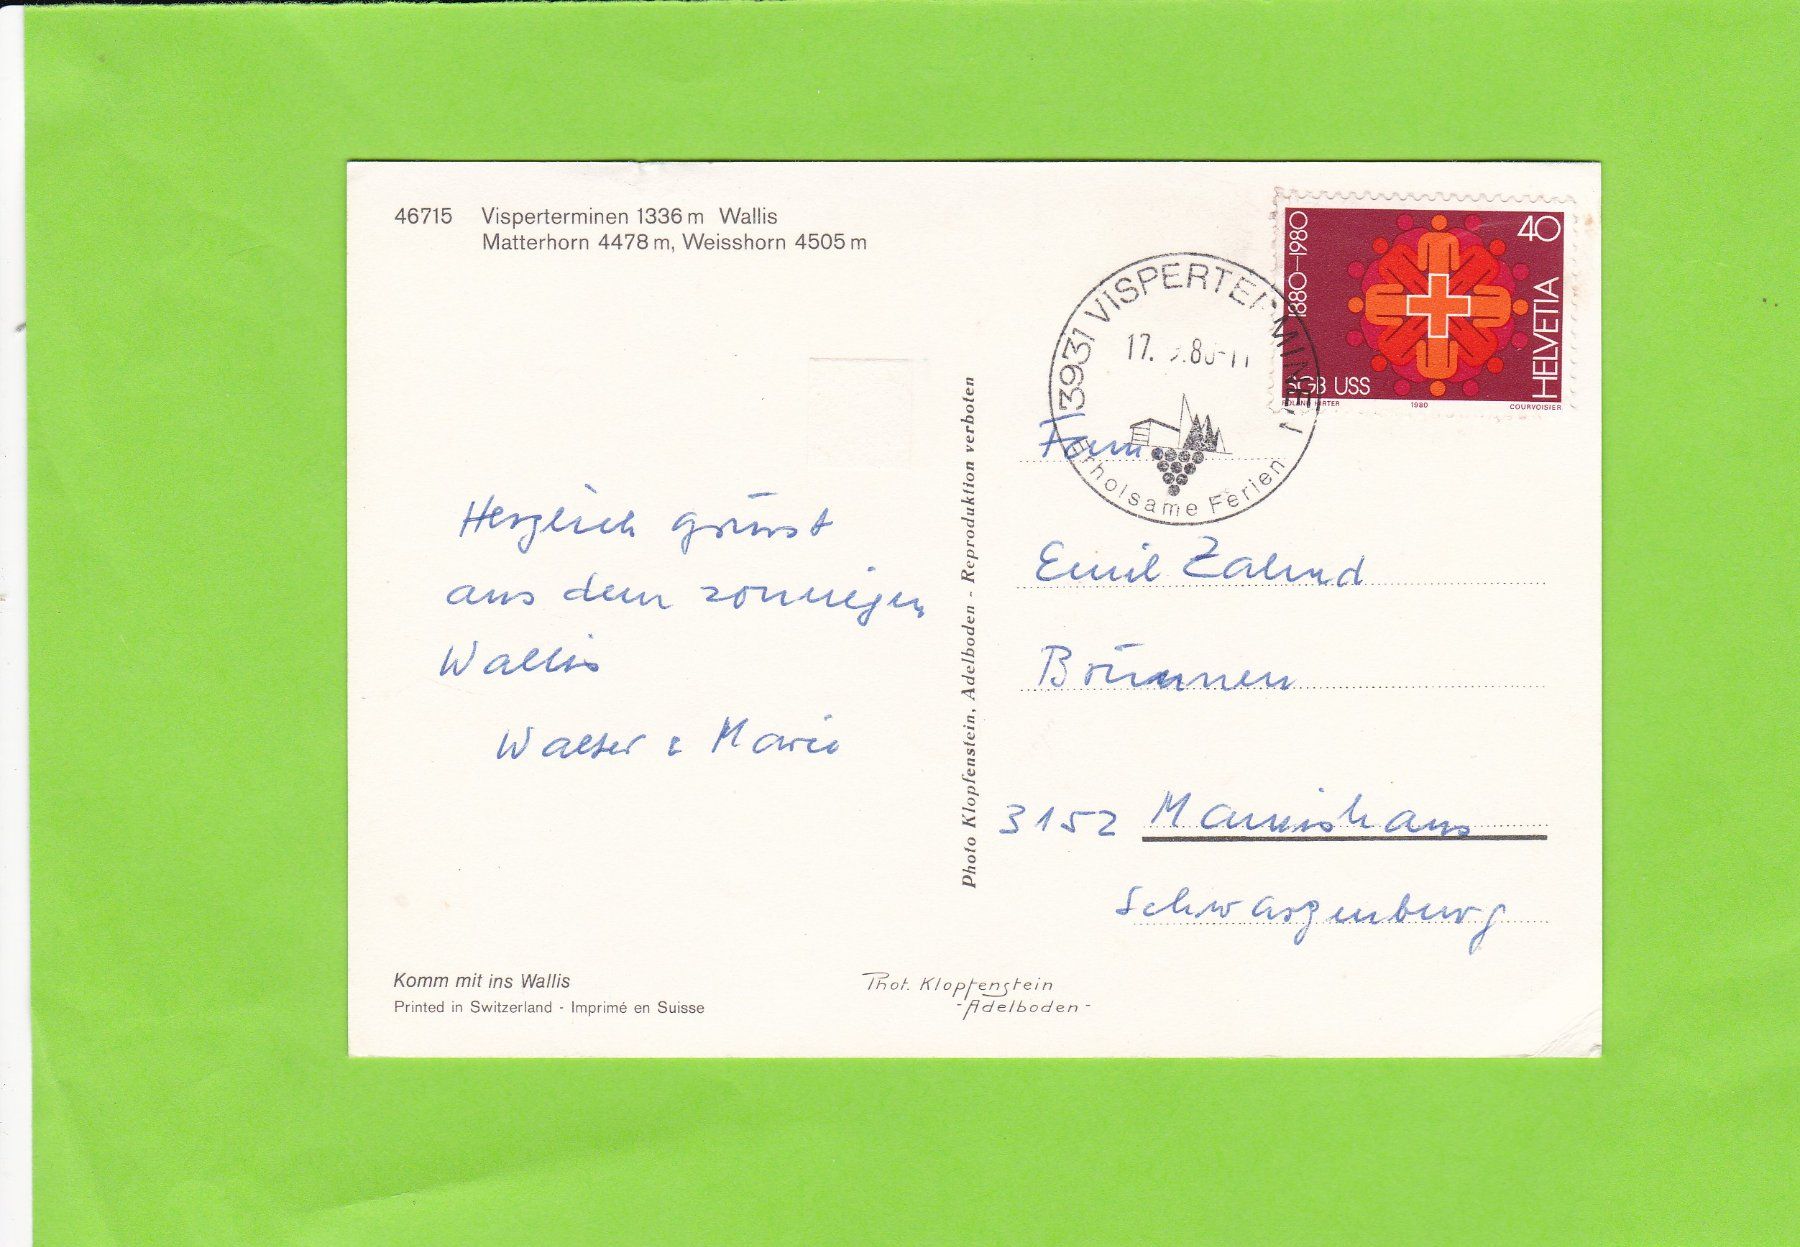 46715 Visperterminen 1336 m Wallis
Matterhorn 4478 m, Weisshorn 4505 m
1880–1980
40
HELVETIA
SGB USS
ROLAND HIRTER 1980 COURVOISIER
3931 VISPERTERMINEN
17. .80-11
Erholsame Ferien
Herzlich grüsst
aus dem sonnigen
Wallis
Walter & Marie
Photo Klopfenstein, Adelboden - Reproduktion verboten
Fam
Emil Zahnd
Brünnen
3152 Mamishaus
Schwarzenburg
Komm mit ins Wallis
Printed in Switzerland - Imprimé en Suisse
Phot. Klopfenstein
- Adelboden -